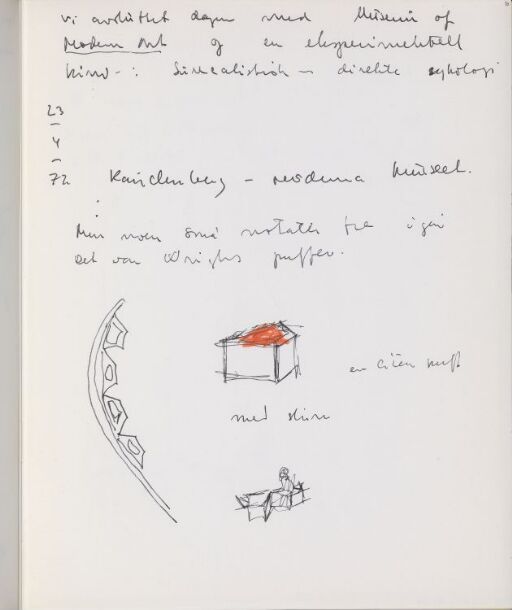 vi avsluttet dagen med Museum of
Modern Art og en eksperimentell
kino - : Surrealistisk - direkte sykologi
23
-
4
-
72 Kandenberg - moderna museet.
Men noen små notater fra igår
det var Wrights puffer.
en liten puff
med skinn